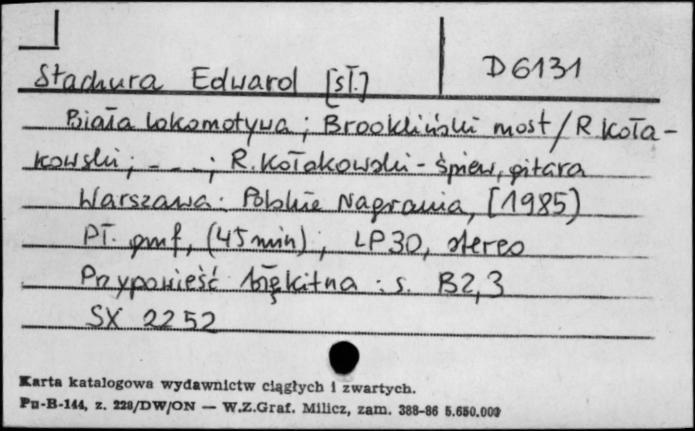 D 6131
Stachura Edward [sł.]
Biała lokomotywa ; Brookliński most / R. Koła-
kowski ; _ _ _ ; R. Kołakowski - śpiew, gitara
Warszawa : Polskie Nagrania, [1985)
Pł. gmf, (45 min) ; LP 30, stereo
Przypowieść błękitna : s. B2,3
SX 2252
Karta katalogowa wydawnictw ciągłych i zwartych.
Pu-B-144, z. 228/DW/ON — W.Z.Graf. Milicz, zam. 388-86 5.650.000